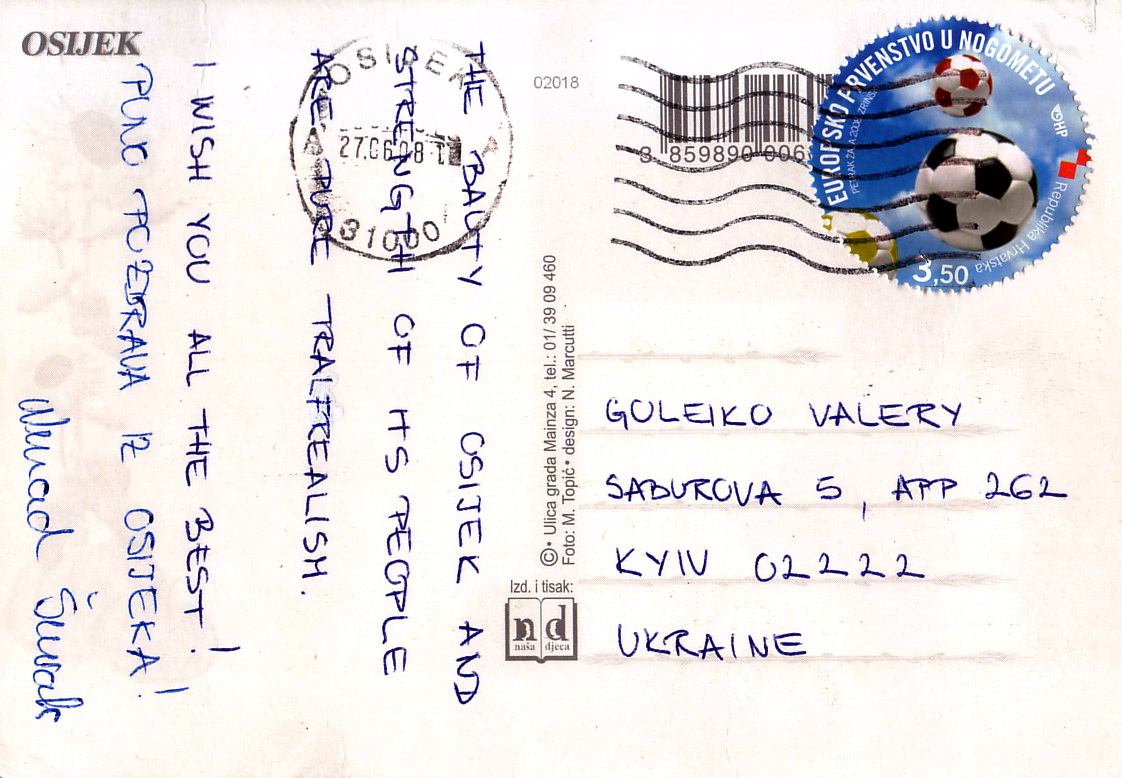 OSIJEK
THE BAUTY OF OSIJEK AND
STRENGTH OF ITS PEOPLE
ARE PURE TRALFREALISM.
I WISH YOU ALL THE BEST!
PUNO POZDRAVA IZ OSIJEKA!
Nenad
OSIJEK
27.06.08
31000
02018
© • Ulica grada Mainza 4, tel.: 01/ 39 09 460
Foto: M. Topić • design: N. Marcutti
Izd. i tisak:
nd
naša djeca
3 859890 006
EUROPSKO PRVENSTVO U NOGOMETU
HP
Republika Hrvatska
3,50
GOLEIKO VALERY
SABUROVA 5, APP 262
KYIV 02222
UKRAINE